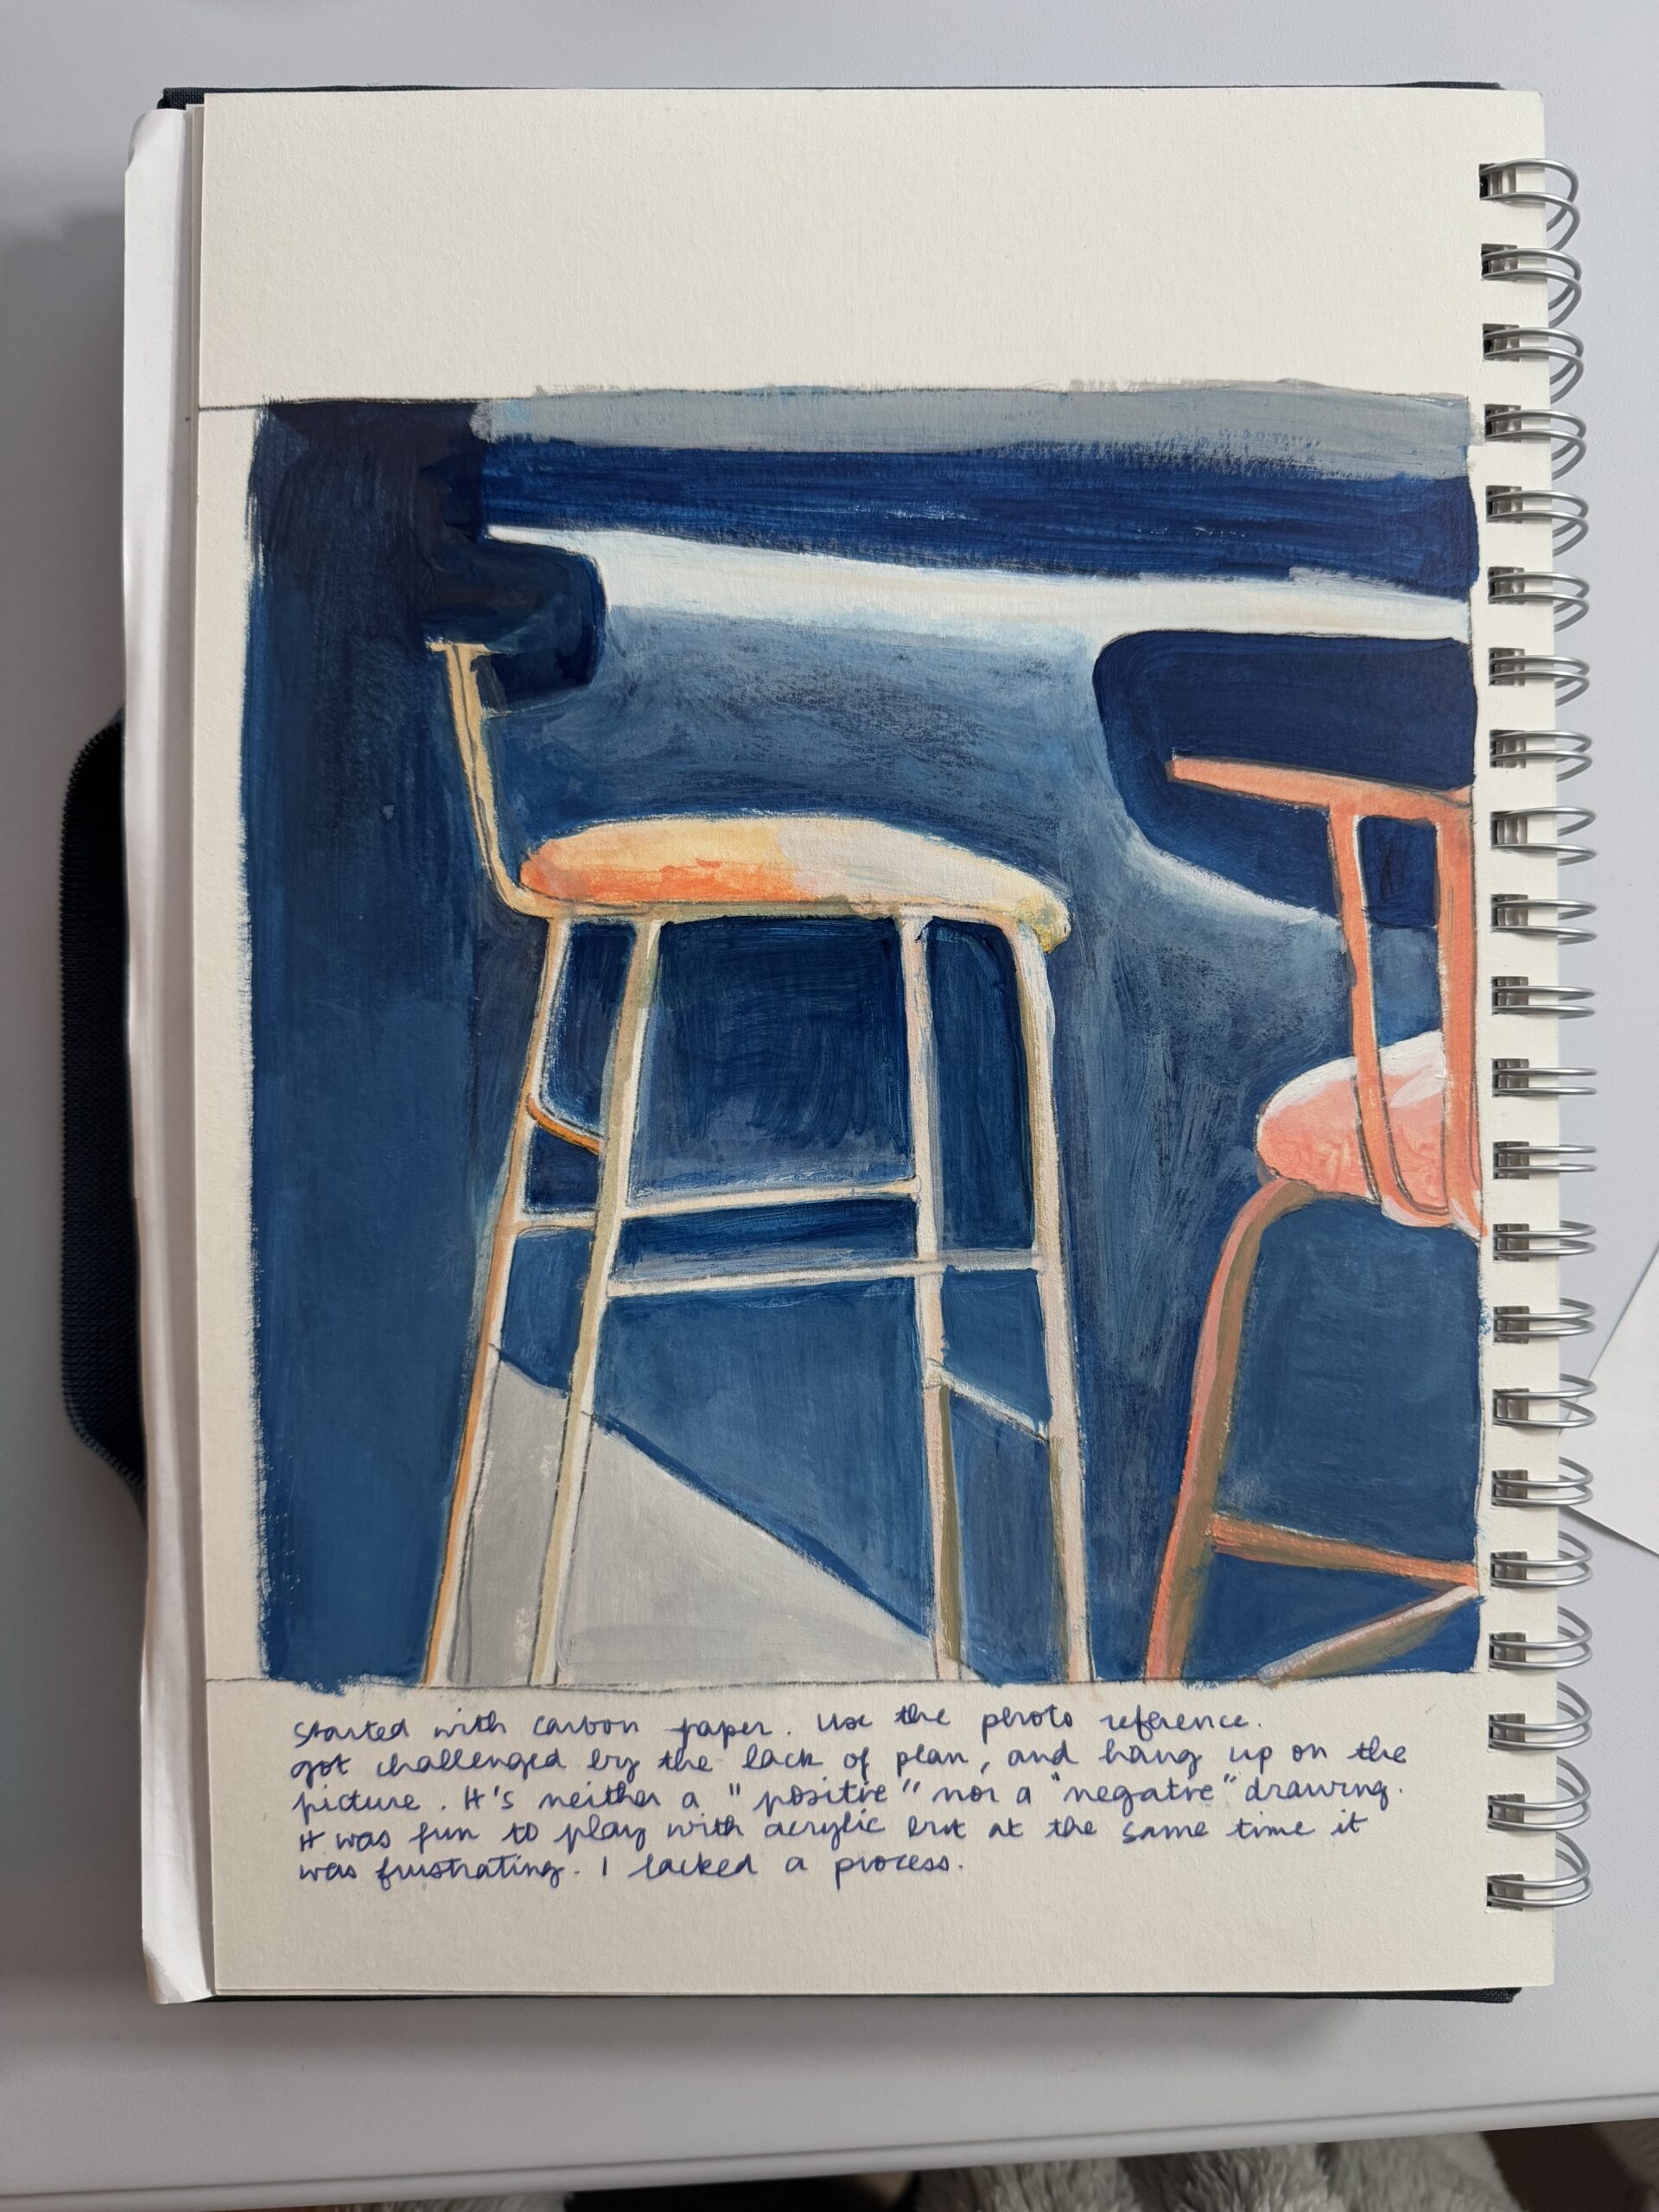 Started with carbon paper. Use the photo reference.
got challenged by the lack of plan, and hang up on the
picture. It's neither a "positive" nor a "negative" drawing.
It was fun to play with acrylic but at the same time it
was frustrating. I lacked a process.